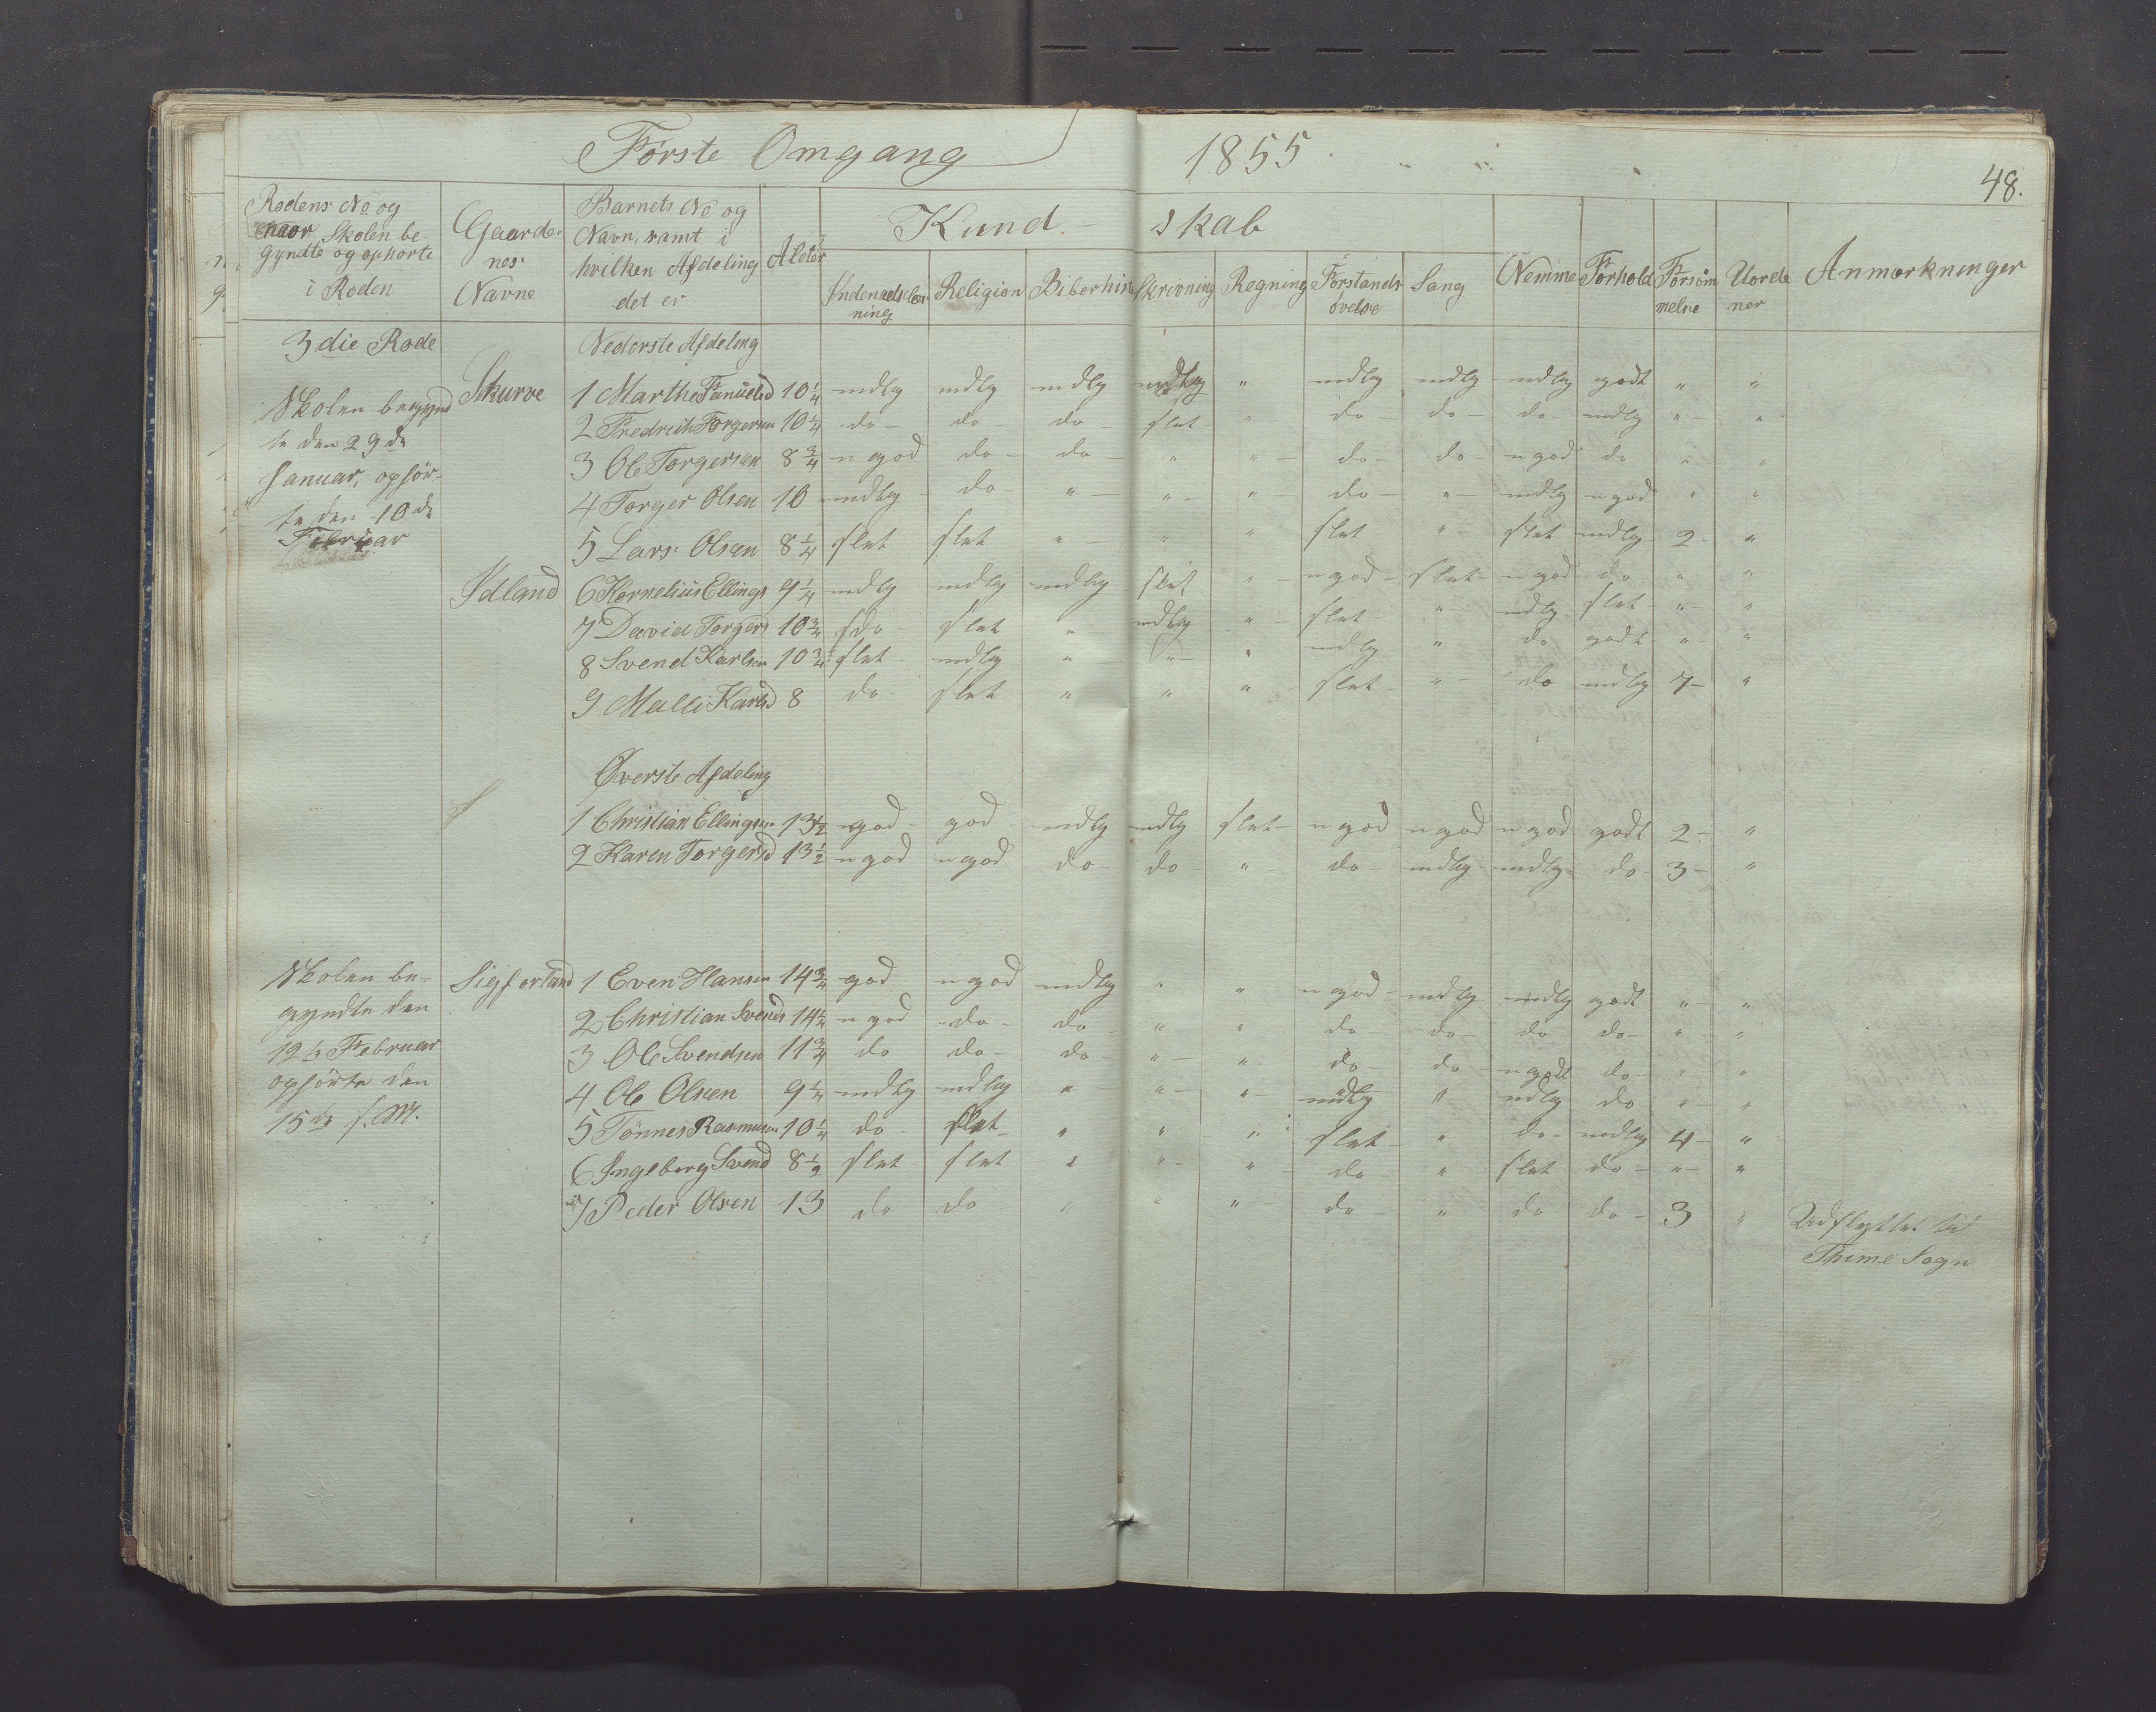 Første Omgang 1855
48.
Rodens No og naar Skolen be- gyndte og ophorte i Roden | Gaarder nes Navne | Barnets No og Navn, samt i hvilken Afdeling det er | Alder | Kund- skab | Nemme | Forhold | Forsöm melse | Uorde ner | Anmærkninger
Religion | Biberhis | Skrivning | Regning | Forstands övelse | Sang
3 die Rode | Nederste Afdeling
Skolen begynd te den 29 de Januar, ophör- te den 10 de Februar
Skurve | 1 Marthe | 10 1/4 | mdlg | mdlg | mdlg | mdlg | " | mdlg | mdlg | mdlg | godt | " | "
2 Fredrich Torgersen | 10 1/4 | do | do | do | slet | " | do | do | do | mdlg | " | "
3 Ole Torgersen | 8 3/4 | n god | do | do | " | " | do | do | n god | do | " | "
4 Torger Olsen | 10 | mdlg | do | " | " | " | do | " | mdlg | n god | " | "
5 Lars Olsen | 8 1/4 | slet | slet | " | " | " | slet | " | slet | mdlg | 2 | "
Idland | 6 Kornelius Ellings | 9 1/4 | mdlg | mdlg | mdlg | slet | " | n god | slet | n god | do | " | "
7 David Torgers | 10 3/4 | do | slet | " | mdlg | " | slet | " | mdlg | slet | " | "
8 Svend Karlsen | 10 3/4 | slet | mdlg | " | " | " | mdlg | " | do | godt | " | "
9 Malli Karlsd | 8 | do | slet | " | " | " | slet | " | do | mdlg | 7 | "
Øverste Afdeling
1 Christian Ellingsen | 13 1/2 | n god | god | mdlg | mdlg | slet | n god | n god | n god | godt | 2 | "
2 Karen Torgersd | 13 1/2 | n god | n god | do | do | " | do | mdlg | mdlg | do | 3 | "
Skolen be- gyndte den 12 te Februar ophörte den 15 de s. M.
Sigferland | 1 Even Hansen | 14 3/4 | god | n god | mdlg | " | " | n god | mdlg | mdlg | godt | " | "
2 Christian Svends | 14 1/4 | n god | do | do | " | " | do | do | do | do | " | "
3 Ole Svendsen | 11 3/4 | do | do | do | " | " | do | do | n godt | do | " | "
4 Ole Olsen | 9 1/4 | mdlg | mdlg | " | " | " | mdlg | " | mdlg | do | " | "
5 Tönnes Rasmussen | 10 1/4 | do | slet | " | " | " | slet | " | do | mdlg | 4 | "
6 Ingeborg Svend | 8 1/2 | slet | slet | " | " | " | do | " | slet | do | " | "
7 Peder Olsen | 13 | do | do | " | " | " | do | " | do | do | 3 | " | Udflyttet til
Thime Sogn